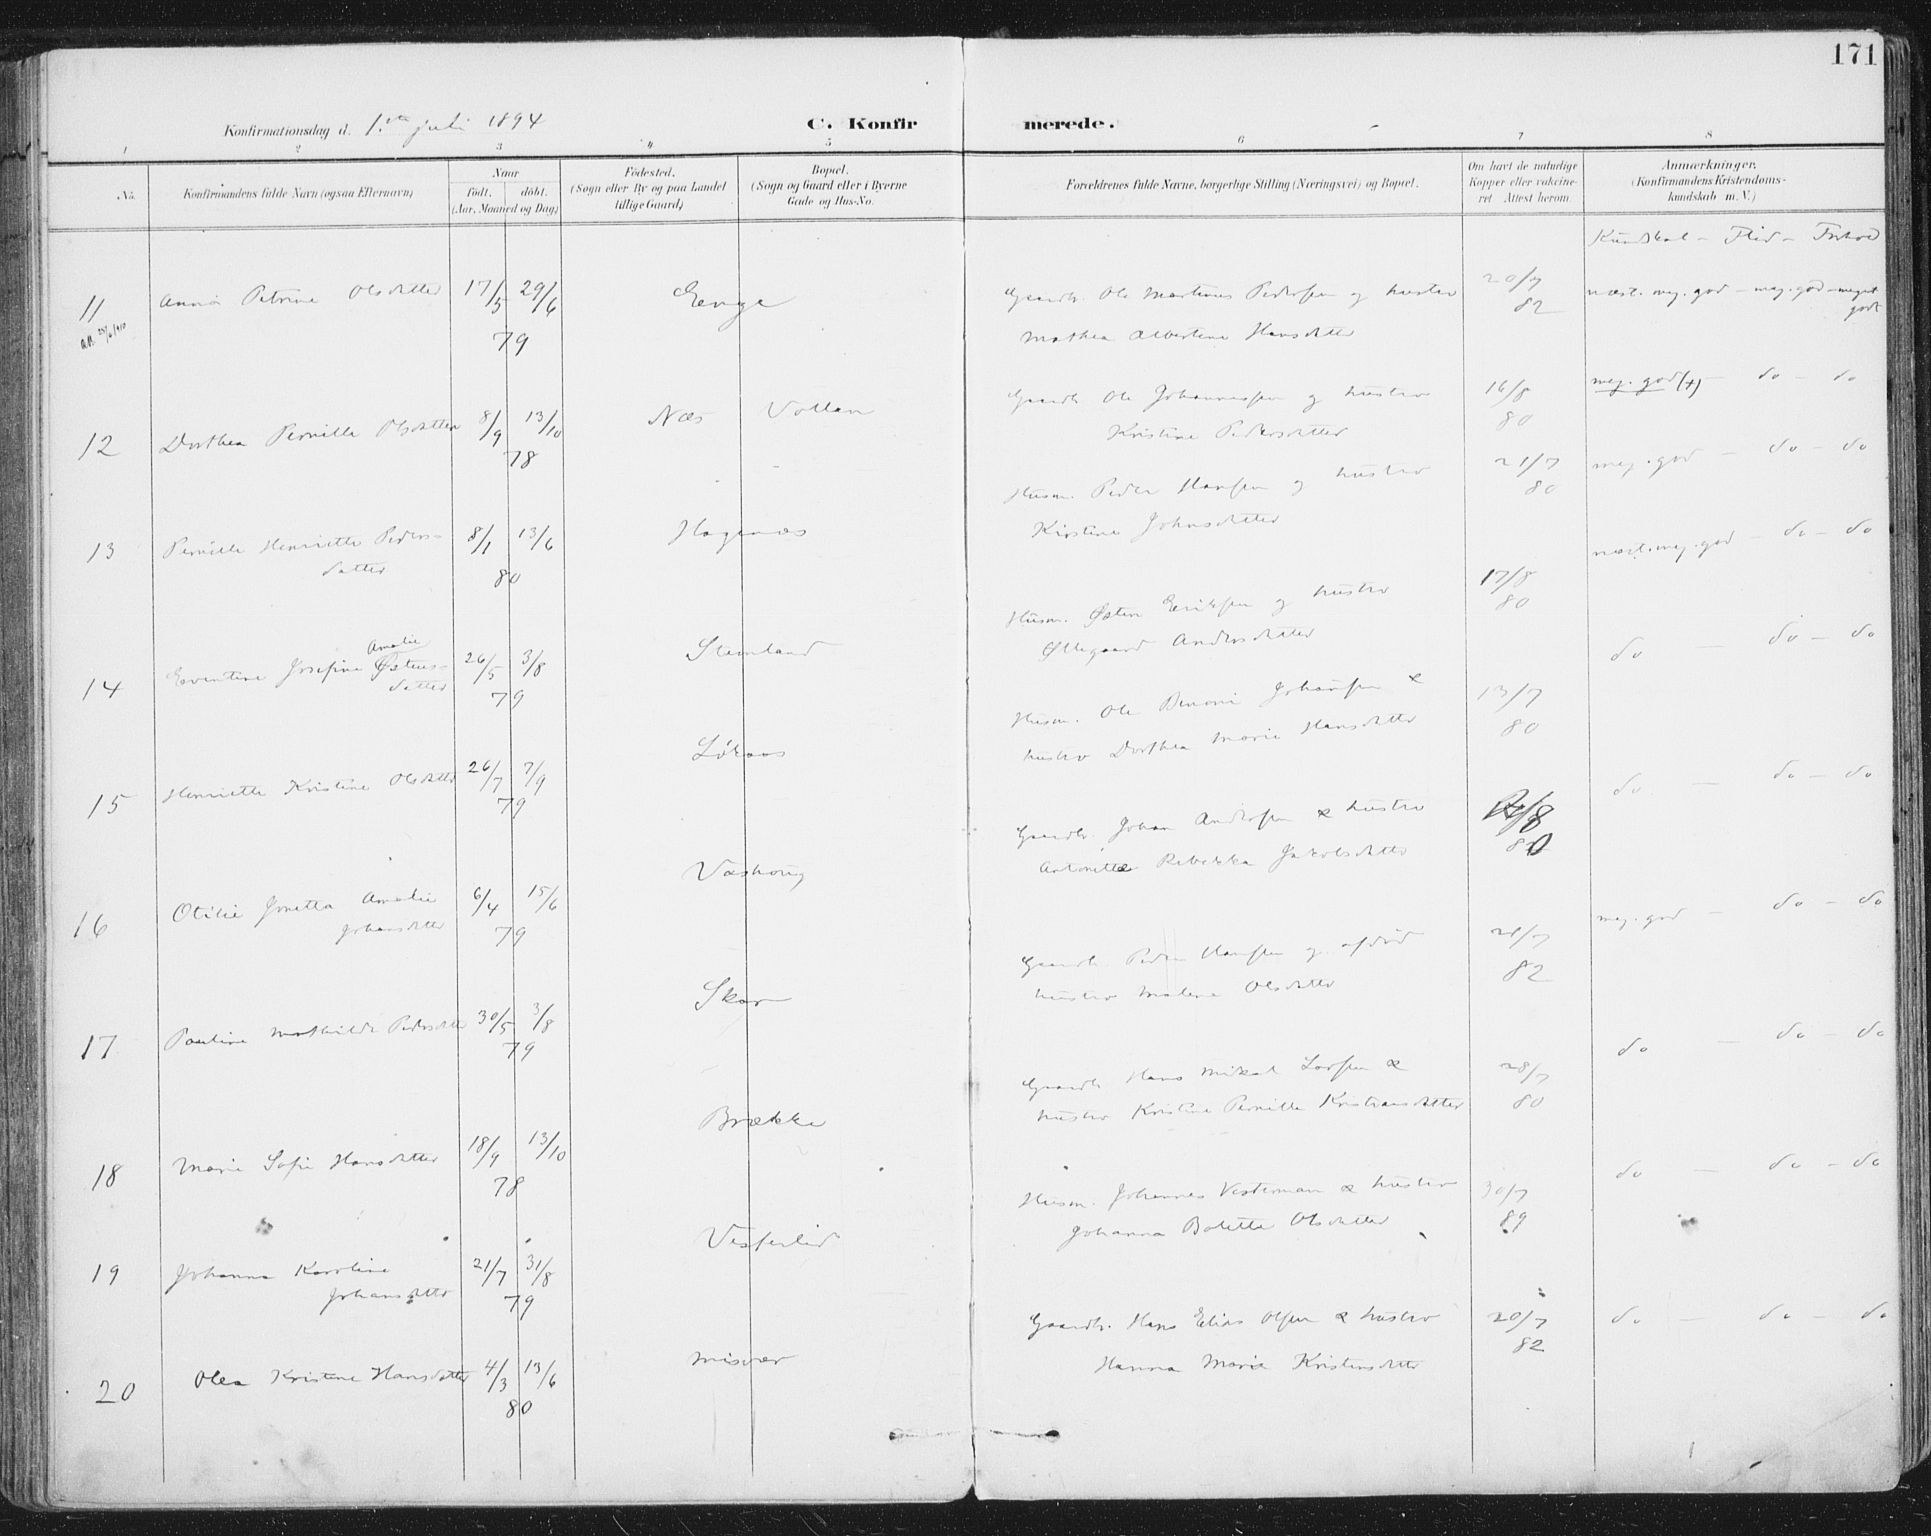 171
Konfirmationsdag d. 1ste juli 1894
C. Konfirmerede.
1 2 3 4 5 6 7 8
No.
Konfirmandens fulde Navn (ogsaa Efternavn)
Naar
födt. döbt.
(Aar, Maaned og Dag)
Födested.
(Sogn eller By og paa Landet
tillige Gaard)
Bopæl.
(Sogn og Gaard eller i Byerne
Gade og Hus-No.
Forældrenes fulde Navne, borgerlige Stilling (Næringsvei) og Bopæl.
Om havt de naturlige
Kopper eller vakcine-
ret. Attest herom.
Anmærkninger.
(Konfirmandens Kristendoms-
kundskab m. V.)
Kundskab - Flid - Forhold
11 Anna Petrine Olsdatter 17/5 29/6 79 Enge
Gaardbr. Ole Martinus Pedersen og hustru
Mathea Albertine Hansdatter
20/7 82
næst. meg. god - meg. god - meget godt
12 Dorthea Pernille Olsdatter 8/9 13/10 78 Næs Vollen
Gaardbr. Ole Johannessen og hustru
Kristine Pedersdatter
16/8 80
meg. god (+) - do - do
13 Pernille Henriette Peders-
datter 8/1 13/6 80 Hagenæs
Husm. Peder Hansen og hustru
Kirstine Johnsdatter
21/7 80
meg. god - do - do
14 Eventine Josefine Amalie Østens-
datter 26/5 3/8 79 Stemland
Husm. Østen Eriksen og hustru
Øllegaard Andersdatter
17/8 80
næst. meg. god - do - do
15 Henriette Kristine Olsdatter 26/7 7/9 79 Løkaas
Husm. Ole Benoni Johansen &
hustru Dorthea Marie Hansdatter
13/7 80
do - do - do
16 Otilie Jonetta Amalie
Johansdatter 6/4 15/6 79
Gaardbr. Johan Andersen & hustru
Antonette Rebekka Jakobsdatter
/8 80
do - do - do
17 Pauline Mathilde Pedersdatter 30/5 3/8 79 Skar
Gaardbr. Peder Hansen og afdød
hustru Malene Olsdatter
28/7 82
meg. god - do - do
18 Marie Sofie Hansdatter 18/9 13/10 78 Brække
Gaardbr. Hans Mikal Larsen &
hustru Kristine Pernille Kristiansdatter
28/7 80
do - do - do
19 Johanna Karoline
Johansdatter 21/7 31/8 79 Vesterlid
Husm. Johannes Vesterman & hustru
Johanna Bolette Olsdatter
30/7 89
do - do - do
20 Olea Kristine Hansdatter 4/3 13/6 80 Misvær
Gaardbr. Hans Elias Olsen & hustru
Hanna Marie Kristensdatter
20/7 82
do - do - do